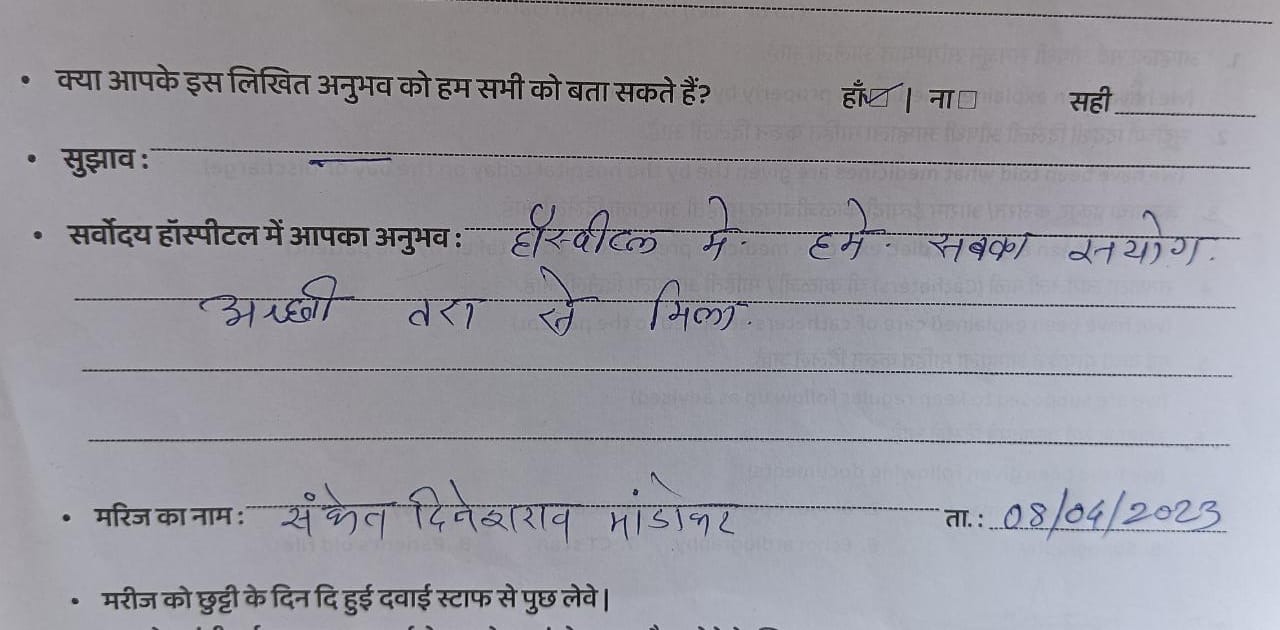 • क्या आपके इस लिखित अनुभव को हम सभी को बता सकते हैं? हाँ☑ | ना☐ सही
• सुझाव : —
• सर्वोदय हॉस्पीटल में आपका अनुभव : हॉस्पीटल मे हमे सबका सनयोग.
अच्छी तरा से मिला.
• मरिज का नाम : संकेत दिनेशराव मांडोकर ता.: 08/04/2023
• मरीज को छुट्टी के दिन दि हुई दवाई स्टाफ से पुछ लेवे |